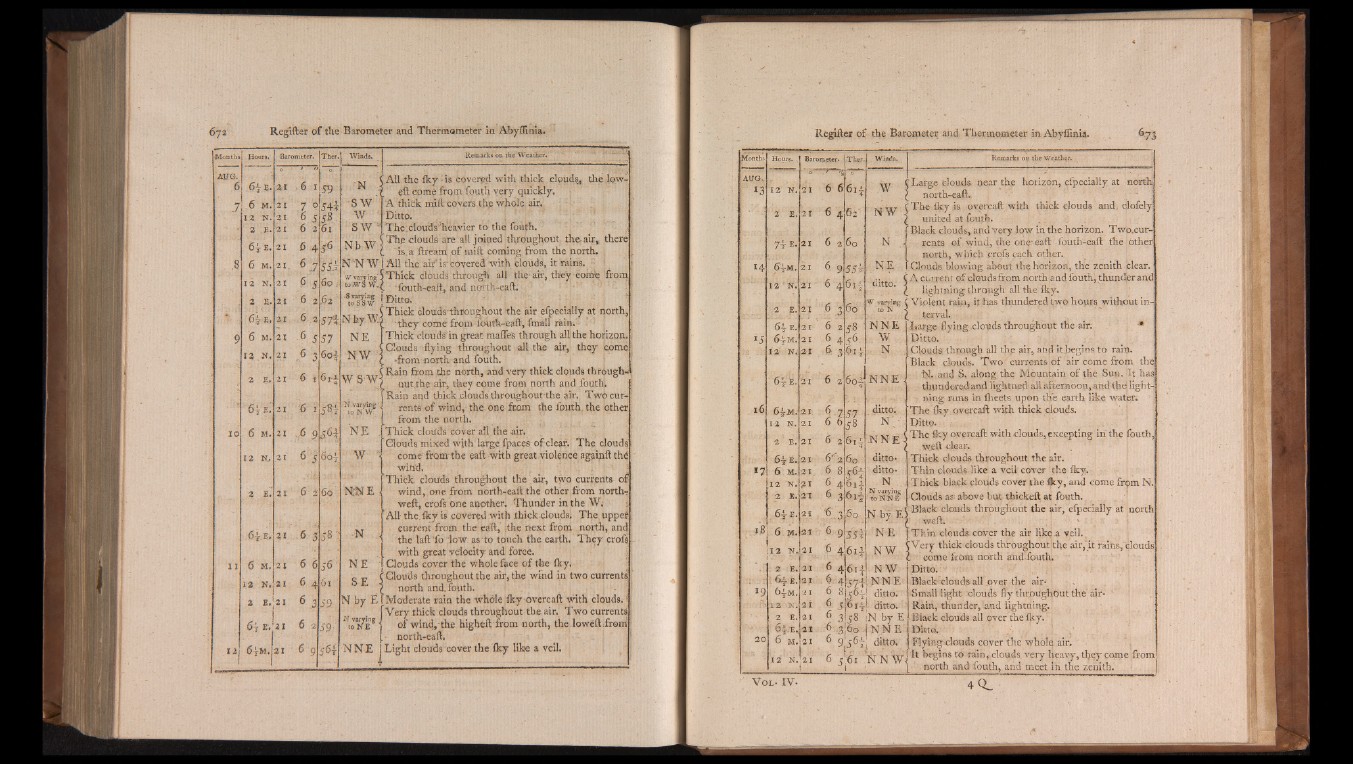 672 Regiſter of the Barometer and Thermometer in Abyſſinia.
Months Hours. Barometer. Ther. Winds. Remarks on the Weather.
AUG.
6 6½ E. 21 6 1 59 N All the ſky is covered with thick clouds, the low-
eſt come from ſouth very quickly.
7 6 M. 21 7 0 54¾ S W A thick miſt covers the whole air.
12 N. 21 6 5 58 W Ditto.
2 E. 21 6 2 61 S W The clouds heavier to the ſouth.
6½ E. 21 6 4 56 N b W The clouds are all joined throughout the air, there
is a ſtream of miſt coming from the north.
8 6 M. 21 6 7 55½ N N W All the air is covered with clouds, it rains.
12 N. 21 6 5 60 W varying to W S W. Thick clouds through all the air, they come from
ſouth-eaſt, and north-eaſt.
2 E. 21 6 2 62 S varying to S S W Ditto.
6½ E. 21 6 2 57¾ N by W. Thick clouds throughout the air eſpecially at north,
they come from ſouth-eaſt, ſmall rain.
9 6 M. 21 6 5 57 N E Thick clouds in great maſſes through all the horizon.
12 N. 21 6 3 60¾ N W Clouds flying throughout all the air, they come
from north and ſouth.
2 E. 21 6 1 61¼ W S W Rain from the north, and very thick clouds through-
out the air, they come from north and ſouth.
6½ E. 21 6 1 58½ N varying to N W Rain and thick clouds throughout the air. Two cur-
rents of wind, the one from the ſouth, the other
from the north.
10 6 M. 21 6 9 56¾ N E Thick clouds cover all the air.
12 N. 21 6 5 60½ W Clouds mixed with large ſpaces of clear. The clouds
come from the eaſt with great violence againſt the
wind.
2 E. 21 6 2 60 N N E Thick clouds throughout the air, two currents of
wind, one from north-eaſt the other from north-
weſt, croſs one another. Thunder in the W.
6½ E. 21 6 3 58 N All the ſky is covered with thick clouds. The upper
current from the eaſt, the next from north, and
the laſt ſo low as to touch the earth. They croſs
with great velocity and force.
11 6 M. 21 6 6 56 N E Clouds cover the whole face of the ſky.
12 N. 21 6 4 61 S E Clouds throughout the air, the wind in two currents
north and ſouth.
2 E. 21 6 3 59 N by E Moderate rain the whole ſky overcaſt with clouds.
6½ E. 21 6 2 59 N varying to N E Very thick clouds throughout the air. Two currents
of wind, the higheſt from north, the loweſt from
north-eaſt.
12 6½ M. 21 6 9 56¾ N N E Light clouds cover the ſky like a veil.
Regiſter of the Barometer and Thermometer in Abyſſinia. 673
Months Hours. Barometer. Ther. Winds. Remarks on the Weather.
AUG.
13 12 N. 21 6 6 61¼ W Large clouds near the horizon, eſpecially at north
north-eaſt.
2 E. 21 6 4 62 N W The ſky is overcaſt with thick clouds and cloſely
united at ſouth.
7½ E. 21 6 2 60 N Black clouds, and very low in the horizon. Two cur-
rents of wind, the one eaſt ſouth-eaſt the other
north, which croſs each other.
14 6½ M. 21 6 9 55½ N E Clouds blowing about the horizon, the zenith clear.
12 N. 21 6 4 61½ ditto. A current of clouds from north and ſouth, thunder and
lightning through all the ſky.
2 E. 21 6 3 60 W varying to N Violent rain, it has thundered two hours without in-
terval.
6½ E. 21 6 2 58 N N E Large flying clouds throughout the air.
15 6½ M. 21 6 4 56 W Ditto.
12 N. 21 6 3 61½ N Clouds through all the air, and it begins to rain.
6½ E. 21 6 2 60½ N N E Black clouds. Two currents of air come from the
N. and S. along the Mountain of the Sun. It has
thundered and lightned all afternoon, and the light-
ning runs in ſheets upon the earth like water.
16 6½ M. 21 6 7 57 ditto. The ſky overcaſt with thick clouds.
12 N. 21 6 6 58 N Ditto.
2 E. 21 6 2 61½ N N E The ſky overcaſt with clouds, excepting in the ſouth,
weſt clear.
6½ E. 21 6 2 60 ditto. Thick clouds throughout the air.
17 6 M. 21 6 8 56½ ditto. Thin clouds like a veil cover the ſky.
12 N. 21 6 4 61½ N Thick black clouds cover the ſky, and come from N.
2 E. 21 6 3 61½ N varying to N N E Clouds as above but thickeſt at ſouth.
6½ E. 21 6 3 60 N by E Black clouds throughout the air, eſpecially at north
weſt.
18 6 M. 21 6 9 55½ N E Thin clouds cover the air like a veil.
12 N. 21 6 4 61¾ N W Very thick clouds throughout the air, it rains, clouds
come from north and ſouth.
2 E. 21 6 4 61½ N W Ditto.
6½ E. 21 6 4 57¾ N N E Black clouds all over the air.
19 6½ M. 21 6 8 56½ ditto. Small light clouds fly throughout the air.
12 N. 21 6 5 61½ ditto. Rain, thunder, and lightning.
2 E. 21 6 3 58 N by E Black clouds all over the ſky.
6½ E. 21 6 3 60 N N E Ditto.
20 6 M. 21 6 9 56½ ditto. Flying clouds cover the whole air.
12 N. 21 6 5 61 N N W It begins to rain, clouds very heavy, they come from
north and ſouth, and meet in the zenith.
VOL. IV. 4 Q